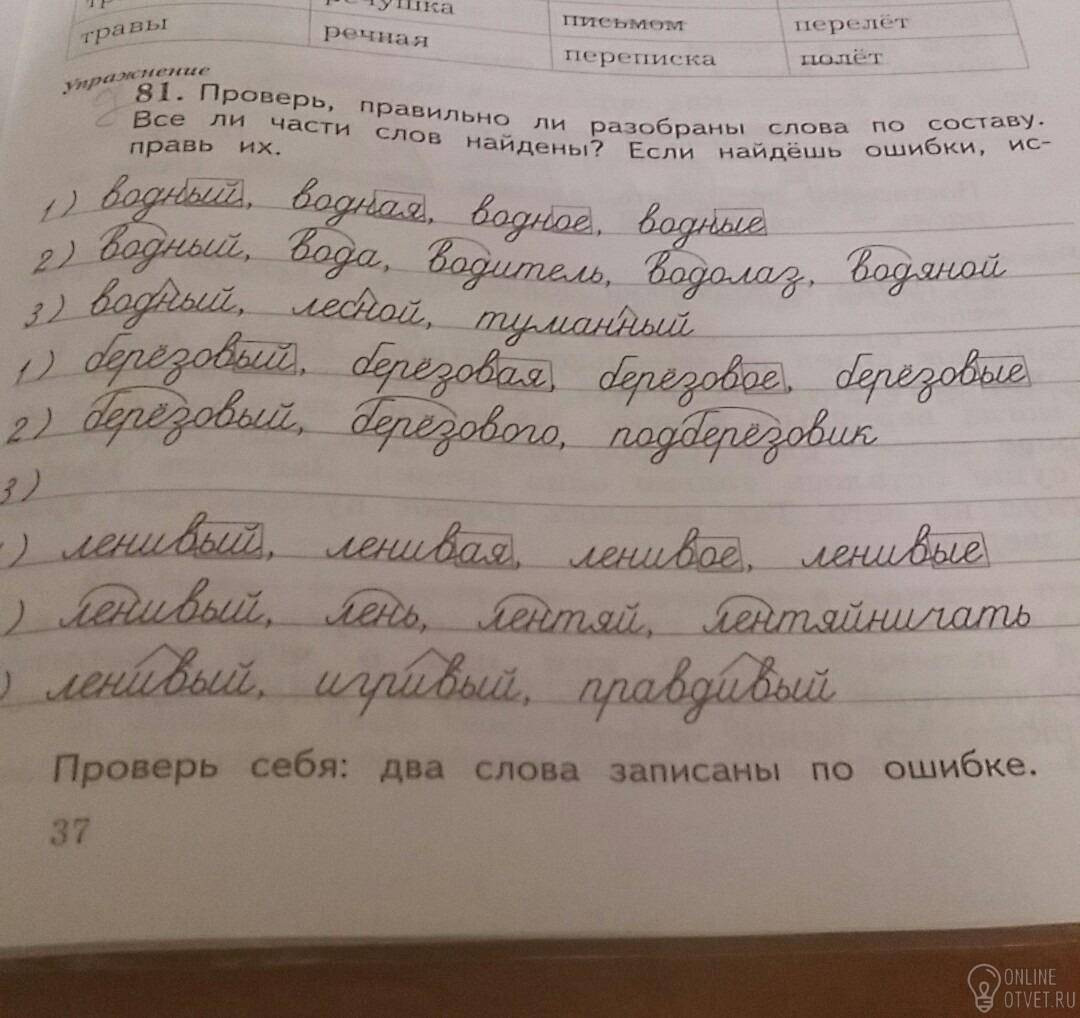 речушка письмом перелёт
травы речная переписка полёт
упражнение
81. Проверь, правильно ли разобраны слова по составу.
Все ли части слов найдены? Если найдёшь ошибки, ис-
правь их.
1) водный, водная, водное, водные
2) водный, вода, водитель, водолаз, водяной
3) водный, лесной, туманный
1) берёзовый, берёзовая, берёзовое, берёзовые
2) берёзовый, берёзового, подберёзовик
3)
) ленивый, ленивая, ленивое, ленивые
) ленивый, лень, лентяй, лентяйничать
) ленивый, игривый, правдивый
Проверь себя: два слова записаны по ошибке.
37
ONLINE
OTVET.RU